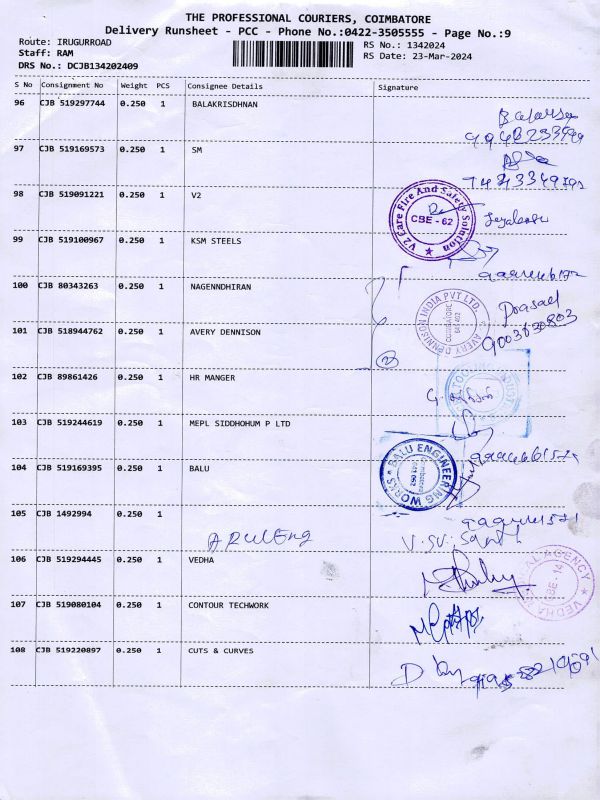 THE PROFESSIONAL COURIERS, COIMBATORE
Delivery Runsheet - PCC - Phone No.:0422-3505555 - Page No.:9
Route: IRUGURROAD
RS No.: 1342024
Staff: RAM
RS Date: 23-Mar-2024
DRS No.: DCJB134202409
S No Consignment No Weight PCS Consignee Details Signature
96 CJB 519297744 0.250 1 BALAKRISDHNAN
97 CJB 519169573 0.250 1 SM
98 CJB 519091221 0.250 1 V2
V2 Care Fire And Safety Solution
CBE - 62
99 CJB 519100967 0.250 1 KSM STEELS
100 CJB 80343263 0.250 1 NAGENNDHIRAN
Prasad
9003630803
101 CJB 518944762 0.250 1 AVERY DENNISON
102 CJB 89861426 0.250 1 HR MANGER
103 CJB 519244619 0.250 1 MEPL SIDDHOHUM P LTD
104 CJB 519169395 0.250 1 BALU
BALU ENGINEERING WORKS
105 CJB 1492994 0.250 1
ARUL Eng
106 CJB 519294445 0.250 1 VEDHA
107 CJB 519080104 0.250 1 CONTOUR TECHWORK
108 CJB 519220897 0.250 1 CUTS & CURVES